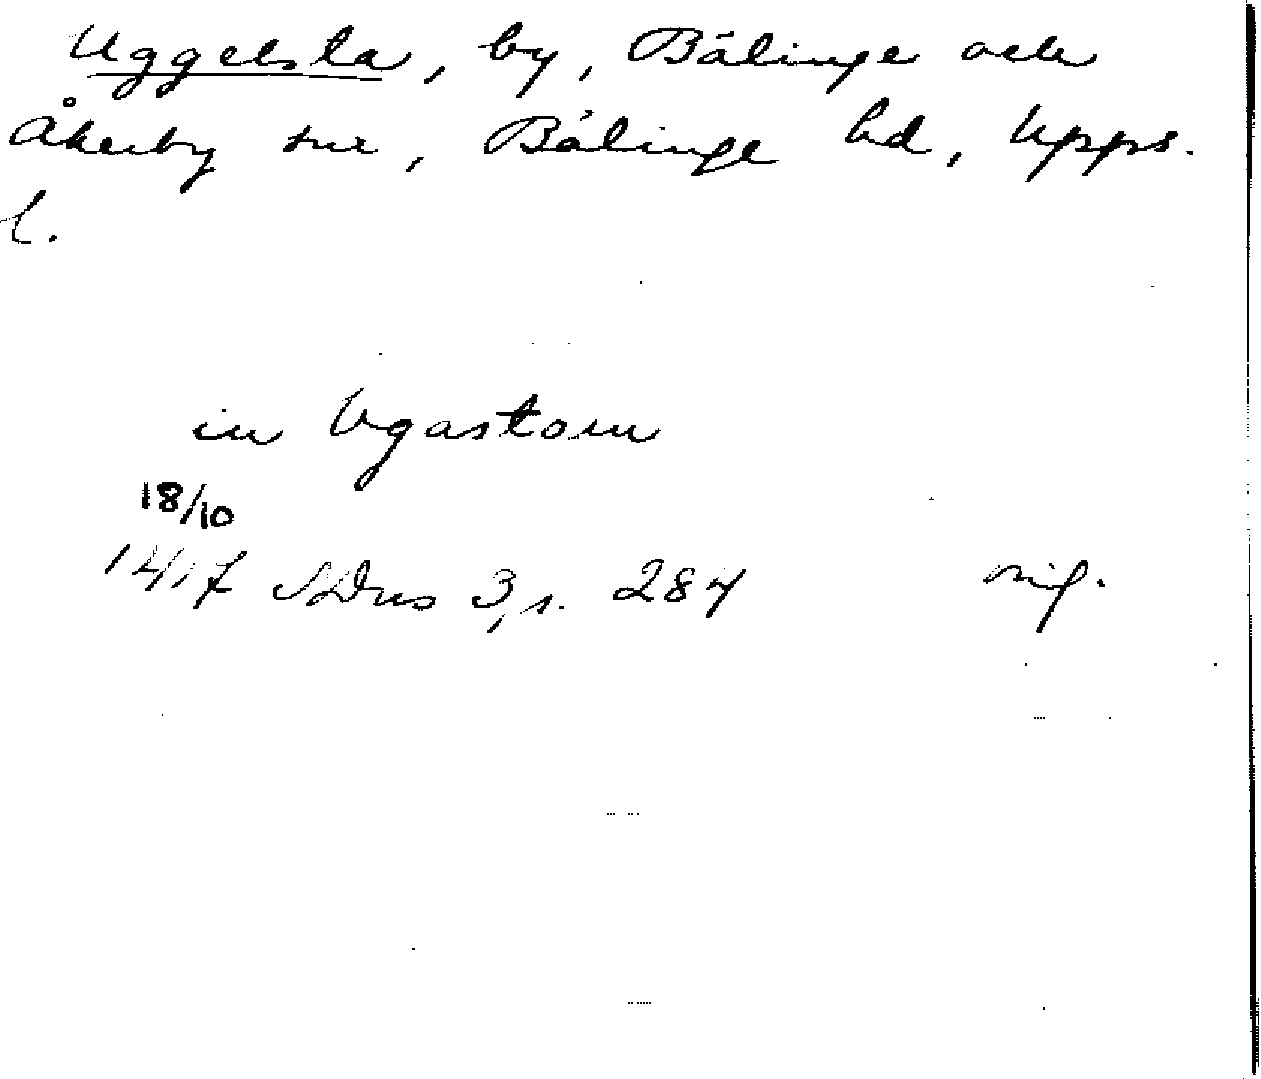 Uggelsta, by, Bälinge och
Åkerby snr, Bälinge hd, Upps.
l.
in Vgastom
18/10
1417 SDns 3, s. 284 orig.